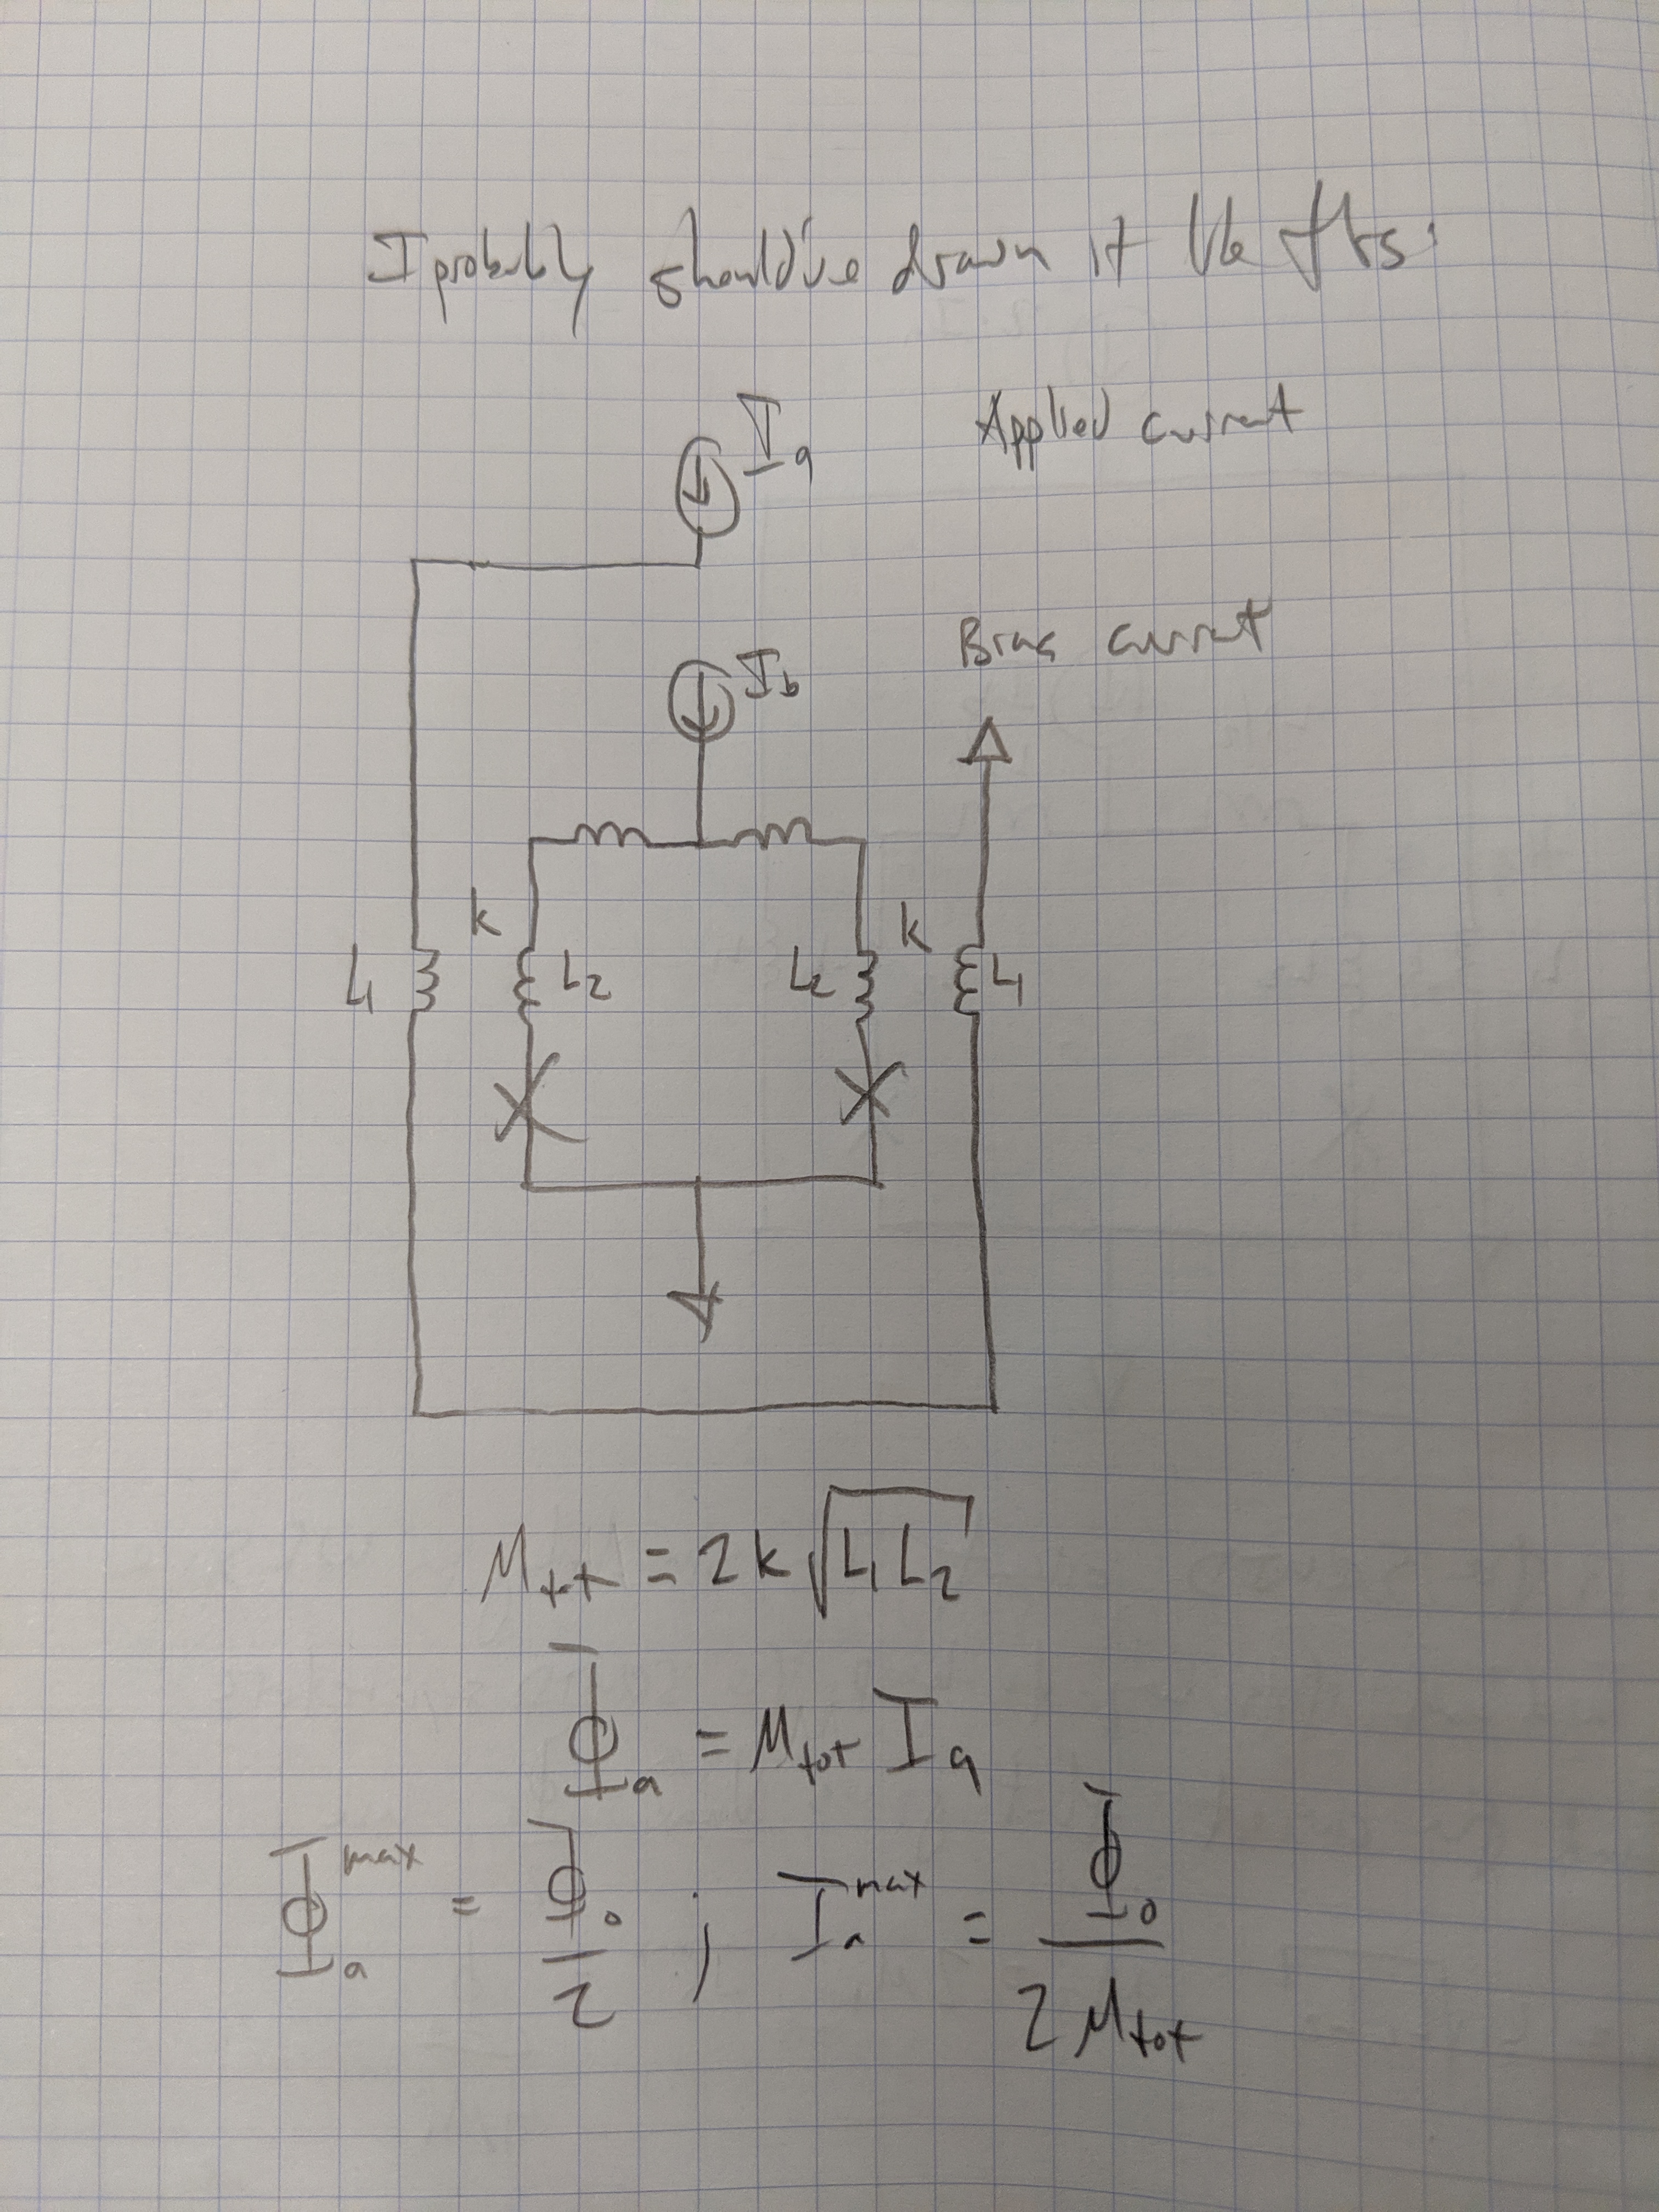 I probably should've drawn it like this:
Ia
Applied current
Bias current
Ib
k
k
L1
L2
L2
L1
Mtot = 2k√L1L2
Φa = Mtot Ia
Φa^max = Φ0/2 ; Ia^max = Φ0/2Mtot